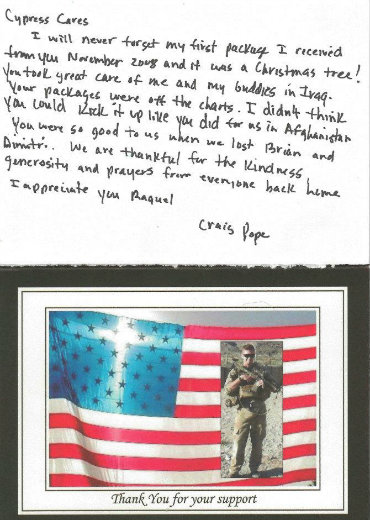 Cypress Cares
I will never forget my first package I received
from you November 2008 and it was a Christmas tree!
You took great care of me and my buddies in Iraq.
Your packages were off the charts. I didn't think
you could kick it up like you did for us in Afghanistan
You were so good to us when we lost Brian and
Dimitri. We are thankful for the kindness,
generosity and prayers from everyone back home
I appreciate you Raquel
Craig Pope
Thank You for your support